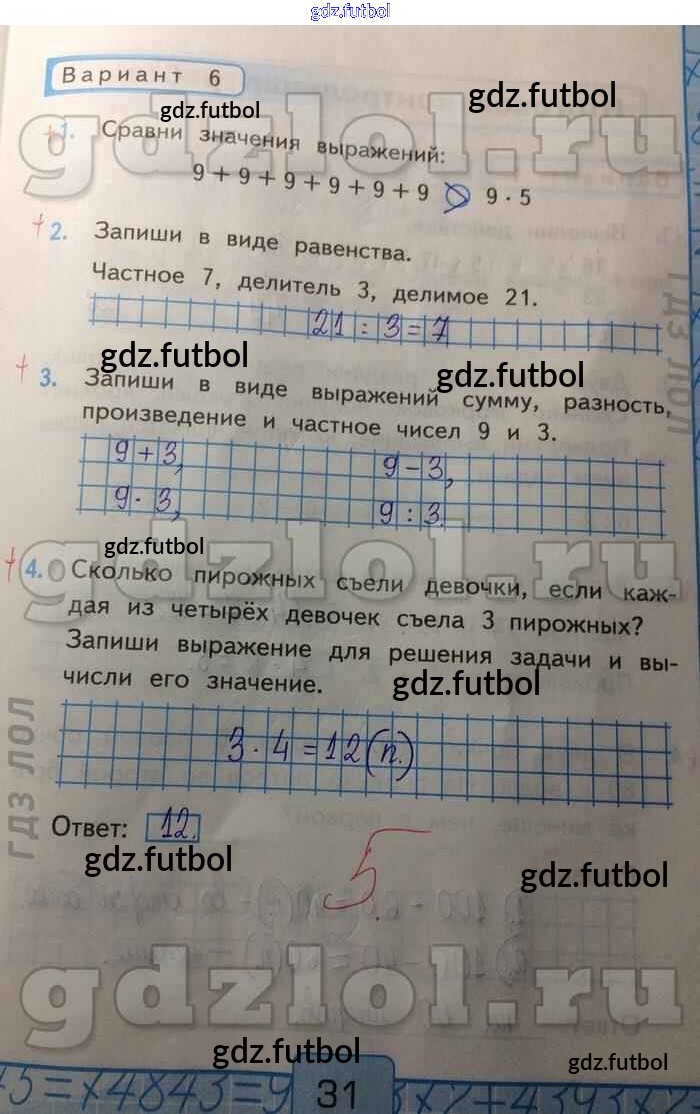 gdz.futbol
Вариант 6
gdz.futbol
gdz.futbol
gdzlol.ru
+ 1. Сравни значения выражений:
9 + 9 + 9 + 9 + 9 + 9 > 9 · 5
+ 2. Запиши в виде равенства.
Частное 7, делитель 3, делимое 21.
21 : 3 = 7
ГДЗ ЛОЛ
gdz.futbol
gdz.futbol
+ 3. Запиши в виде выражений сумму, разность,
произведение и частное чисел 9 и 3.
9 + 3, 9 - 3,
9 · 3, 9 : 3.
gdz.futbol
gdzlol.ru
+ 4. Сколько пирожных съели девочки, если каж-
дая из четырёх девочек съела 3 пирожных?
Запиши выражение для решения задачи и вы-
числи его значение.
gdz.futbol
ГДЗ ЛОЛ
3 · 4 = 12 (п.)
Ответ: 12.
5
gdz.futbol
gdz.futbol
gdzlol.ru
gdz.futbol
gdz.futbol
31